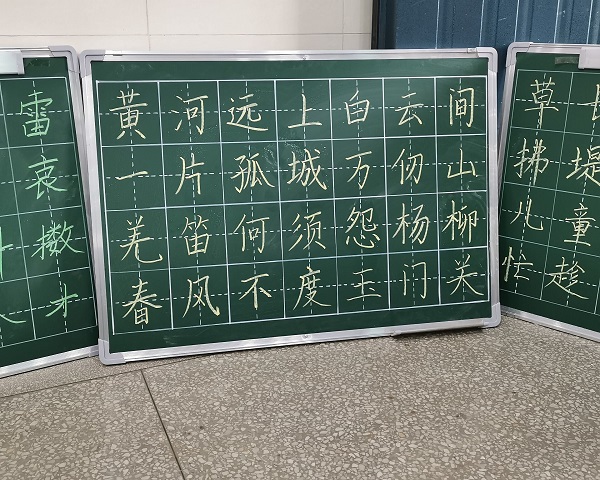 雷
哀
擞
才
黄河远上白云间
一片孤城万仞山
羌笛何须怨杨柳
春风不度玉门关
草长
拂堤
儿童
忙趁